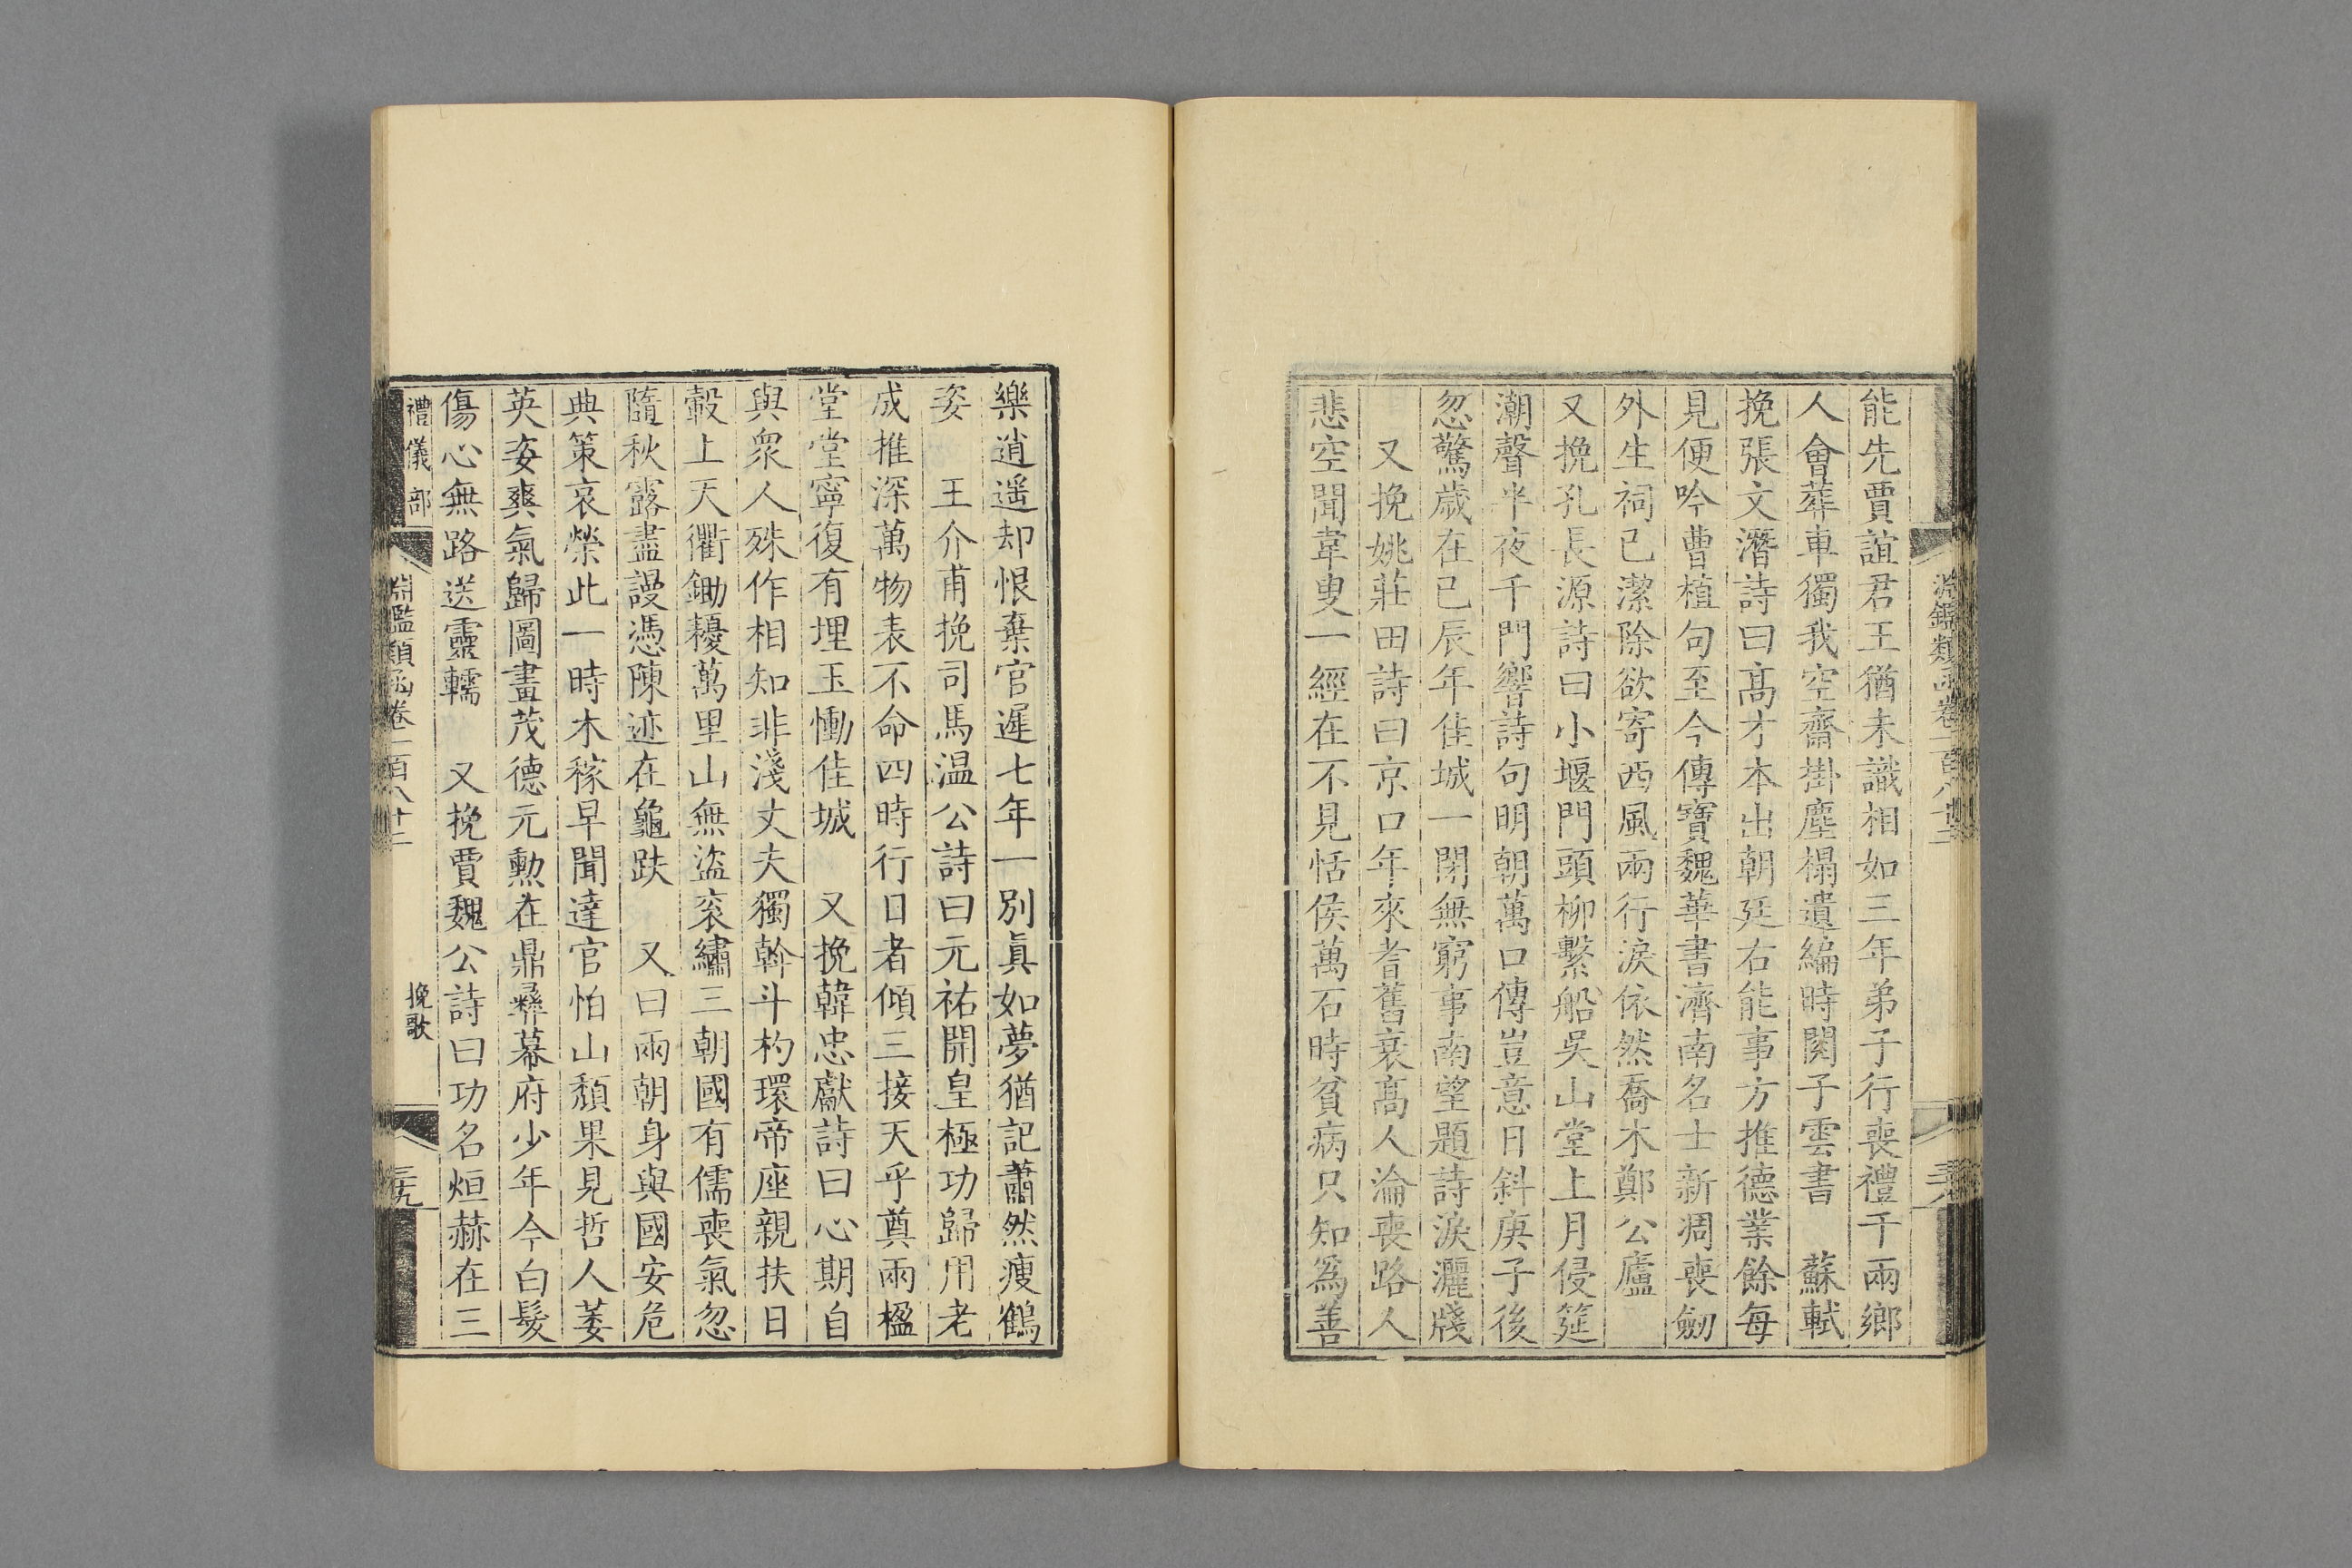 能先賈誼君王猶未識相如三年弟子行喪禮千兩鄉
人會葬車獨我空齋掛塵榻遺編時閱子雲書　蘇軾
挽張文潛詩曰髙才本出朝廷右能事方推德業餘每
見便吟曹植句至今傳寶魏華書濟南名士新凋喪劒
外生祠已潔除欲寄西風兩行淚依然喬木鄭公廬
又挽孔長源詩曰小堰門頭柳繫船吳山堂上月侵筵
潮聲半夜千門響詩句明朝萬口傳豈意日斜庚子後
忽驚歲在已辰年佳城一閉無窮事南望題詩淚灑牋
又挽姚莊田詩曰京口年來耆舊衰髙人淪喪路人
悲空聞韋叟一經在不見恬侯萬石時貧病只知爲善
淵鑑類函卷一百八十二
三八
樂逍遥却恨棄官遲七年一別眞如夢猶記蕭然瘦鶴
姿　王介甫挽司馬温公詩曰元祐開皇極功歸用老
成推深萬物表不命四時行日者傾三接天乎奠兩楹
堂堂寧復有埋玉慟佳城　又挽韓忠獻詩曰心期自
與衆人殊作相知非淺丈夫獨斡斗杓環帝座親扶日
轂上天衢鋤耰萬里山無盜衮繡三朝國有儒喪氣忽
隨秋露盡謾憑陳迹在龜趺　又曰兩朝身與國安危
典策哀榮此一時木稼早聞達官怕山頽果見哲人萎
英姿爽氣歸圖畫茂德元勲在鼎彝幕府少年今白髮
傷心無路送靈轜　又挽賈魏公詩曰功名烜赫在三
禮儀部
挽歌
淵鑑類函卷一百八十二
三九